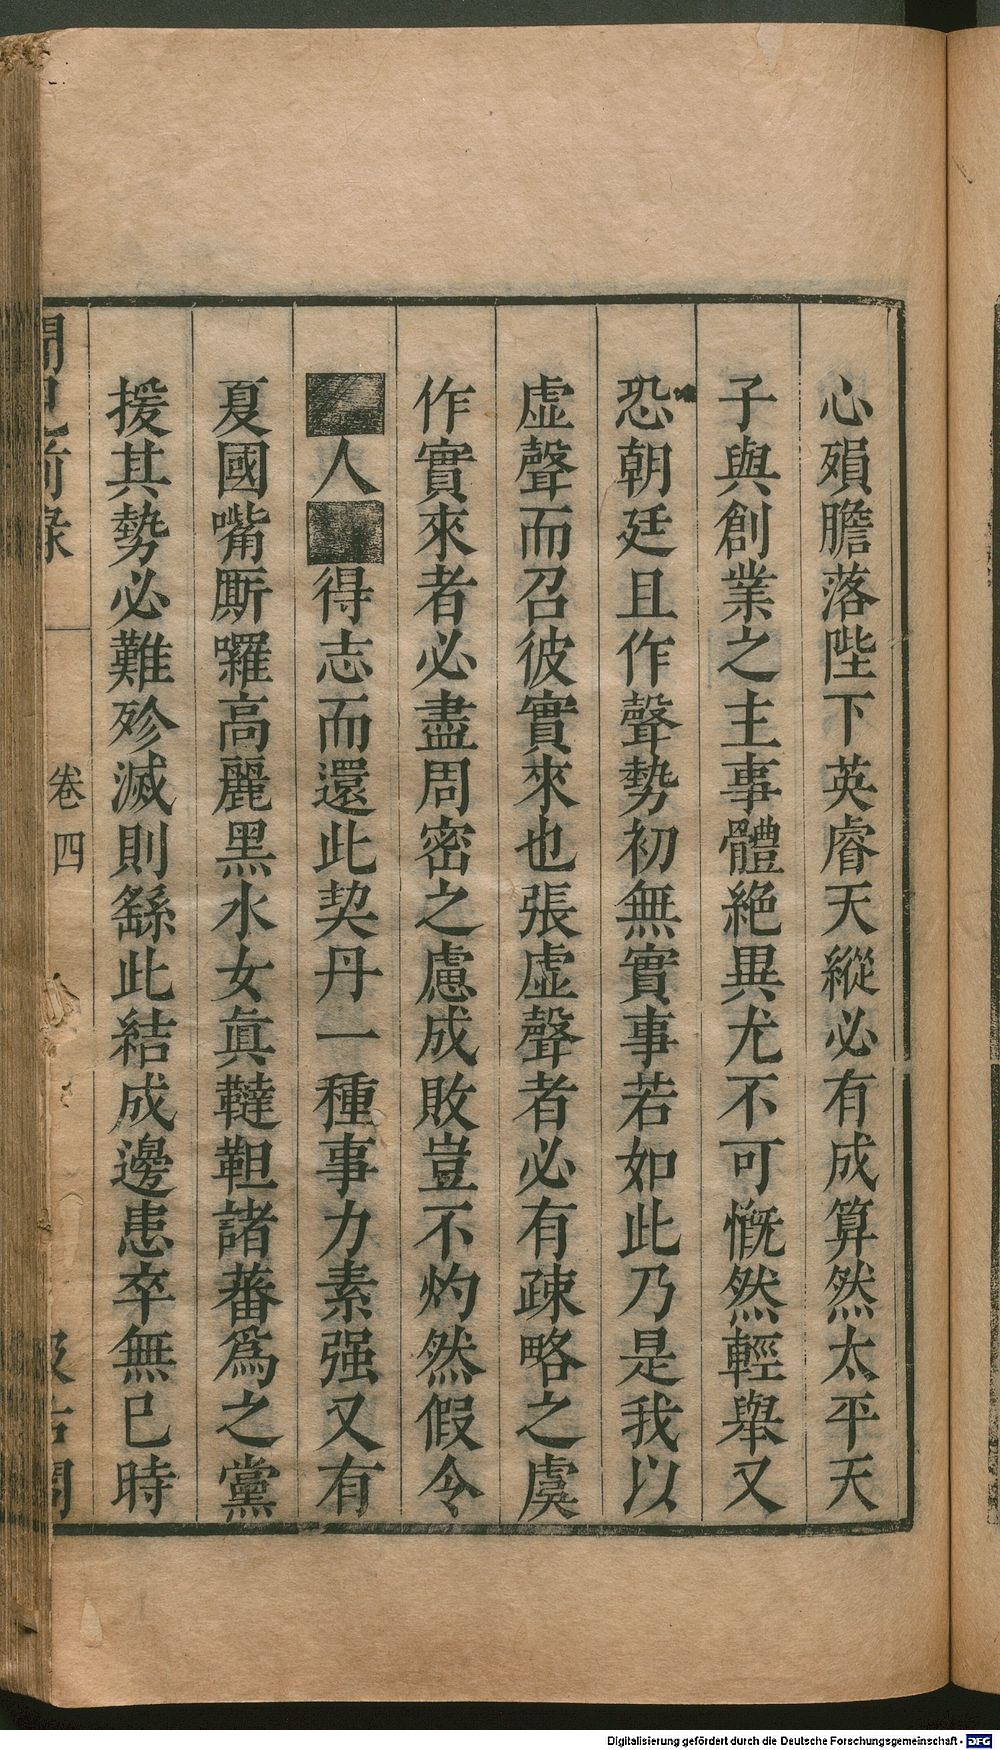 心殞膽落陛下英睿天縱必有成算然太平天
子與創業之主事體絶異尤不可慨然輕舉又
恐朝廷且作聲勢初無實事若如此乃是我以
虛聲而召彼實來也張虛聲者必有疎略之虞
作實來者必盡周密之慮成敗豈不灼然假令
人得志而還此契丹一種事力素强又有
夏國嘴厮囉高麗黑水女眞韃靼諸蕃爲之黨
援其勢必難殄滅則繇此結成邊患卒無已時
聞見前錄
卷四
汲古閣
Digitalisierung gefördert durch die Deutsche Forschungsgemeinschaft - DFG